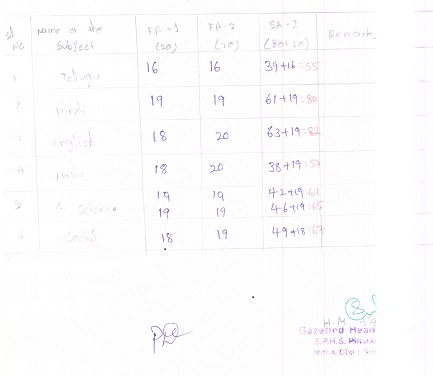 Sl No Name of the Subject FA-1 (20) FA-2 (20) SA-I (80+20) Remarks
1 Telugu 16 16 39+16=55
2 Hindi 19 19 61+19=80
3 English 18 20 63+19=82
4 Maths 18 20 38+19=57
5 G. Science 19 19 42+19=61
19 19 46+19=65
6 Social 18 19 49+18=67
H.M
Gazetted Head
Z.P.H.S.